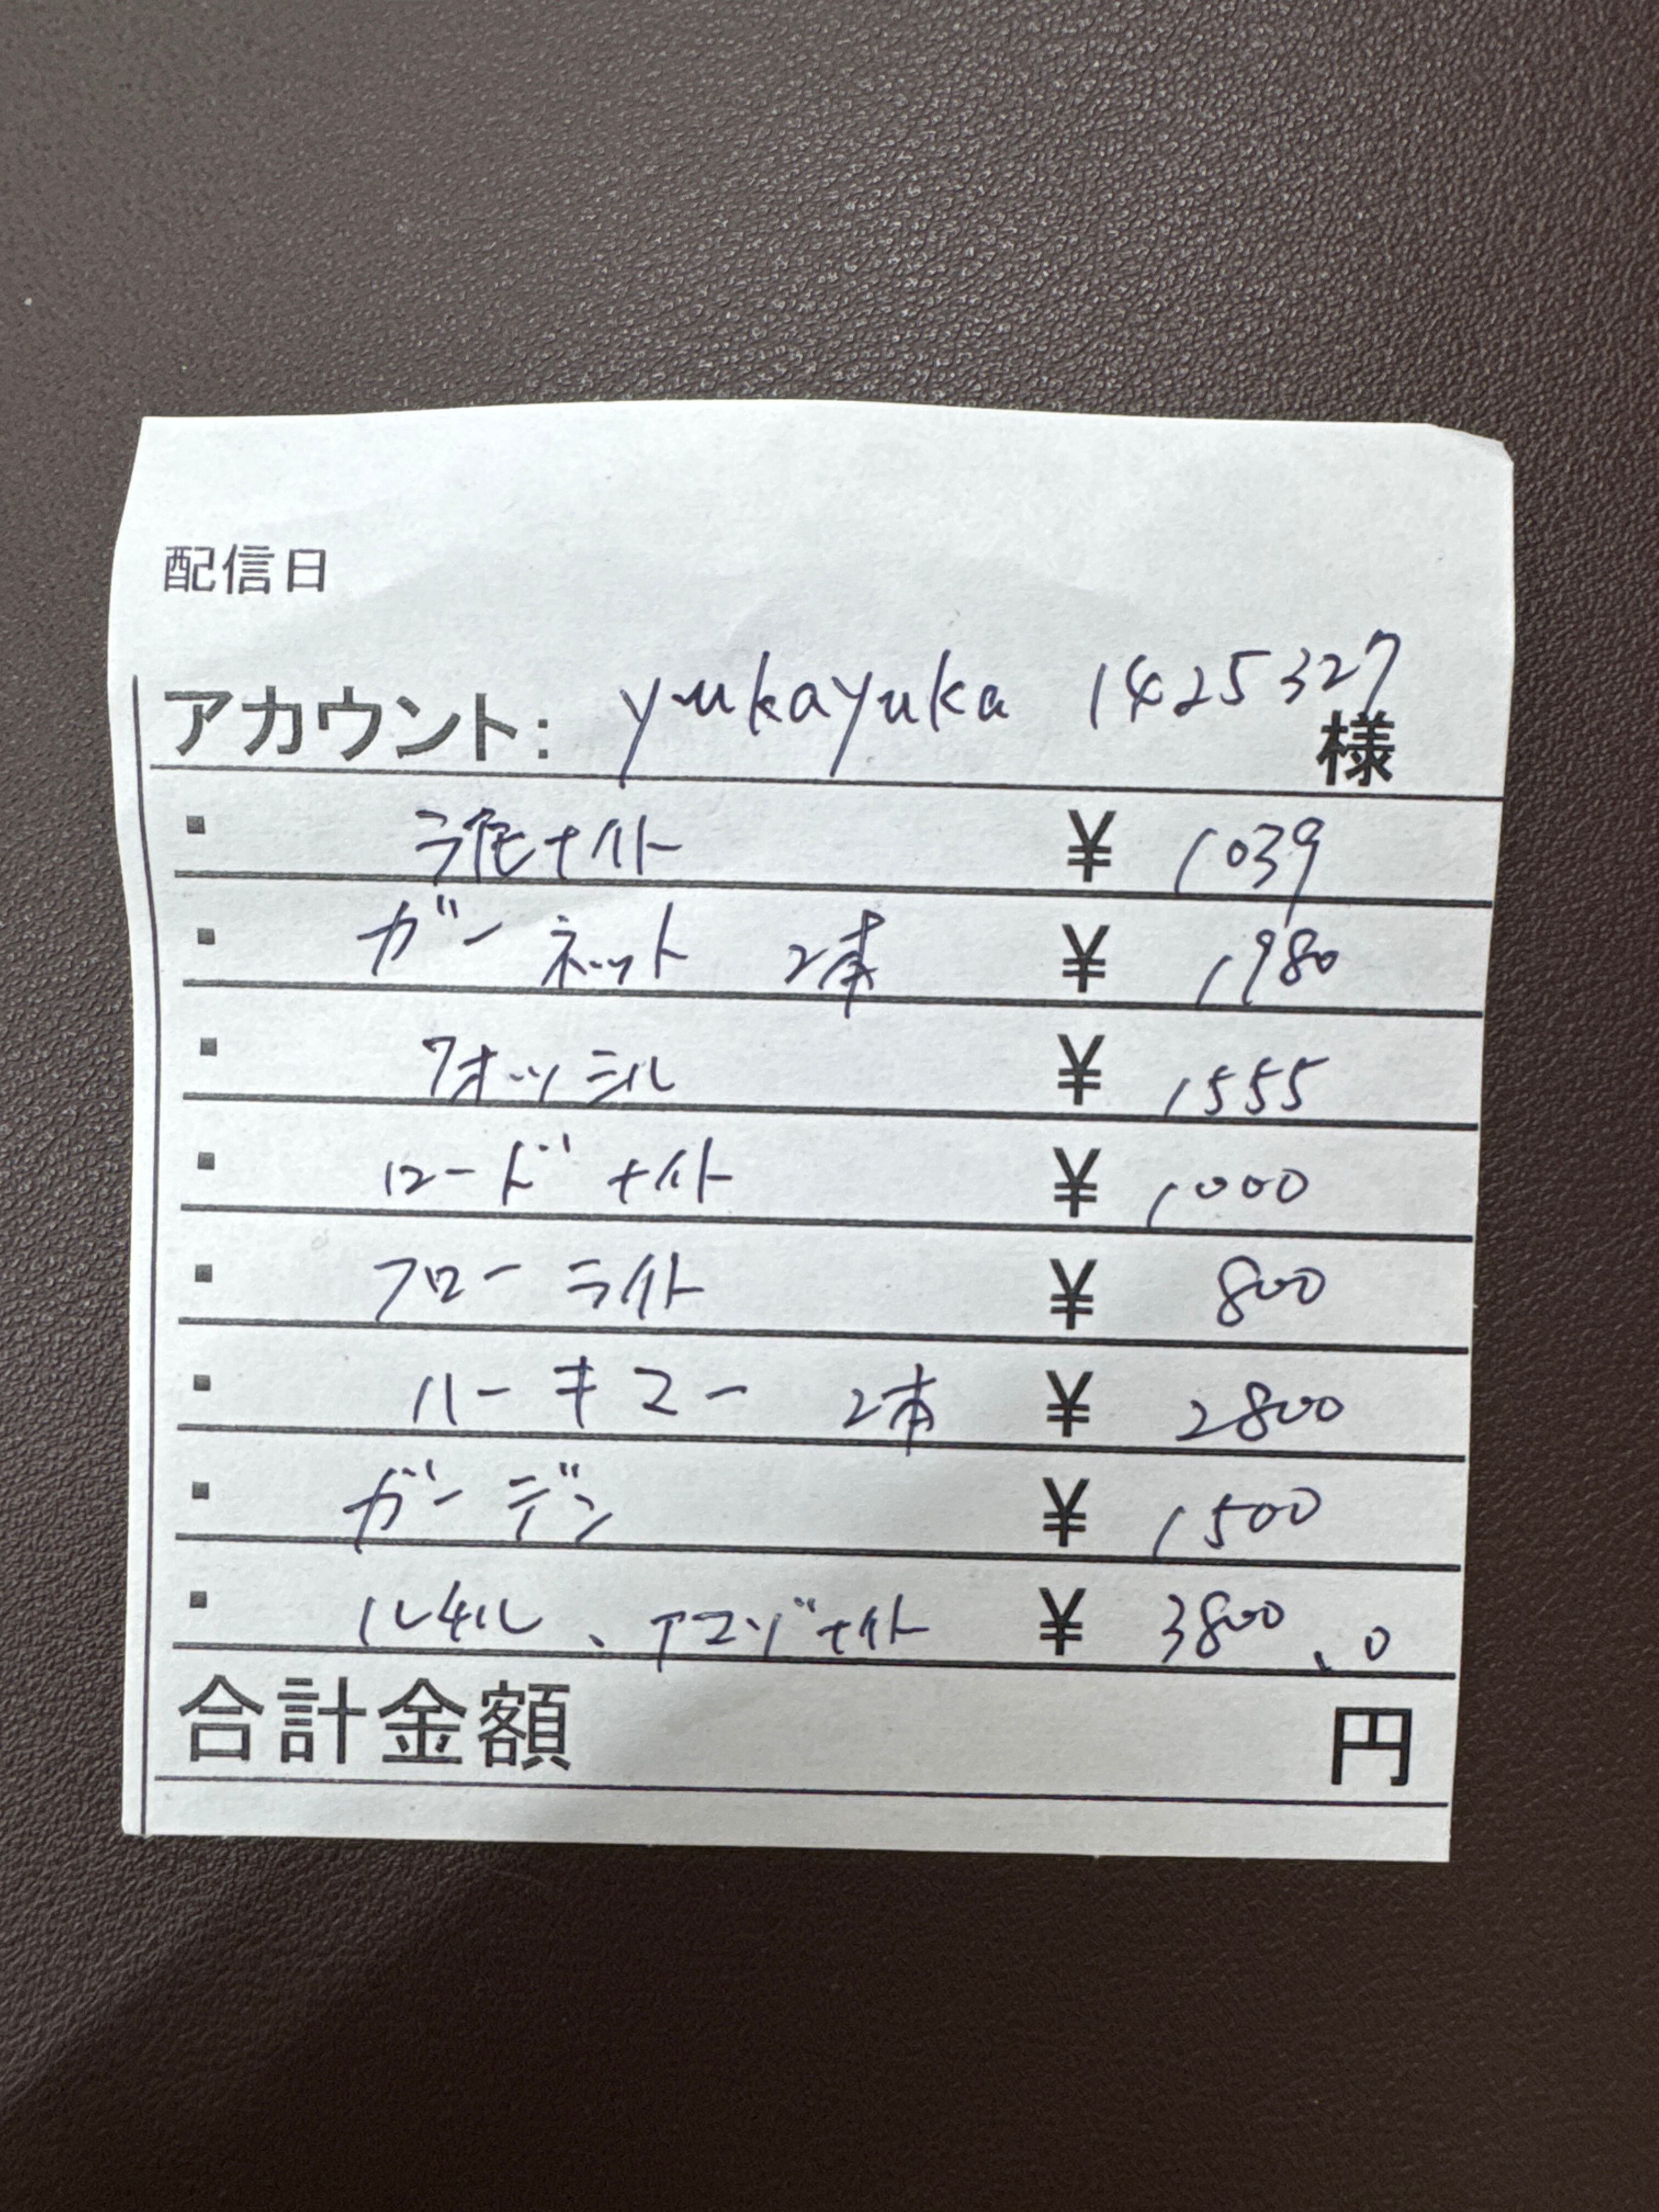 配信日
アカウント: yukayuka 1425327 様
・ ¥ 1039
・ ガーネット 2本 ¥ 1980
・ フォッシル ¥ 1555
・ ロードナイト ¥ 1000
・ フローライト ¥ 800
・ ハーキマー 2本 ¥ 2800
・ ガーデン ¥ 1500
・ ルチル、アマゾナイト ¥ 3800、0
合計金額 円